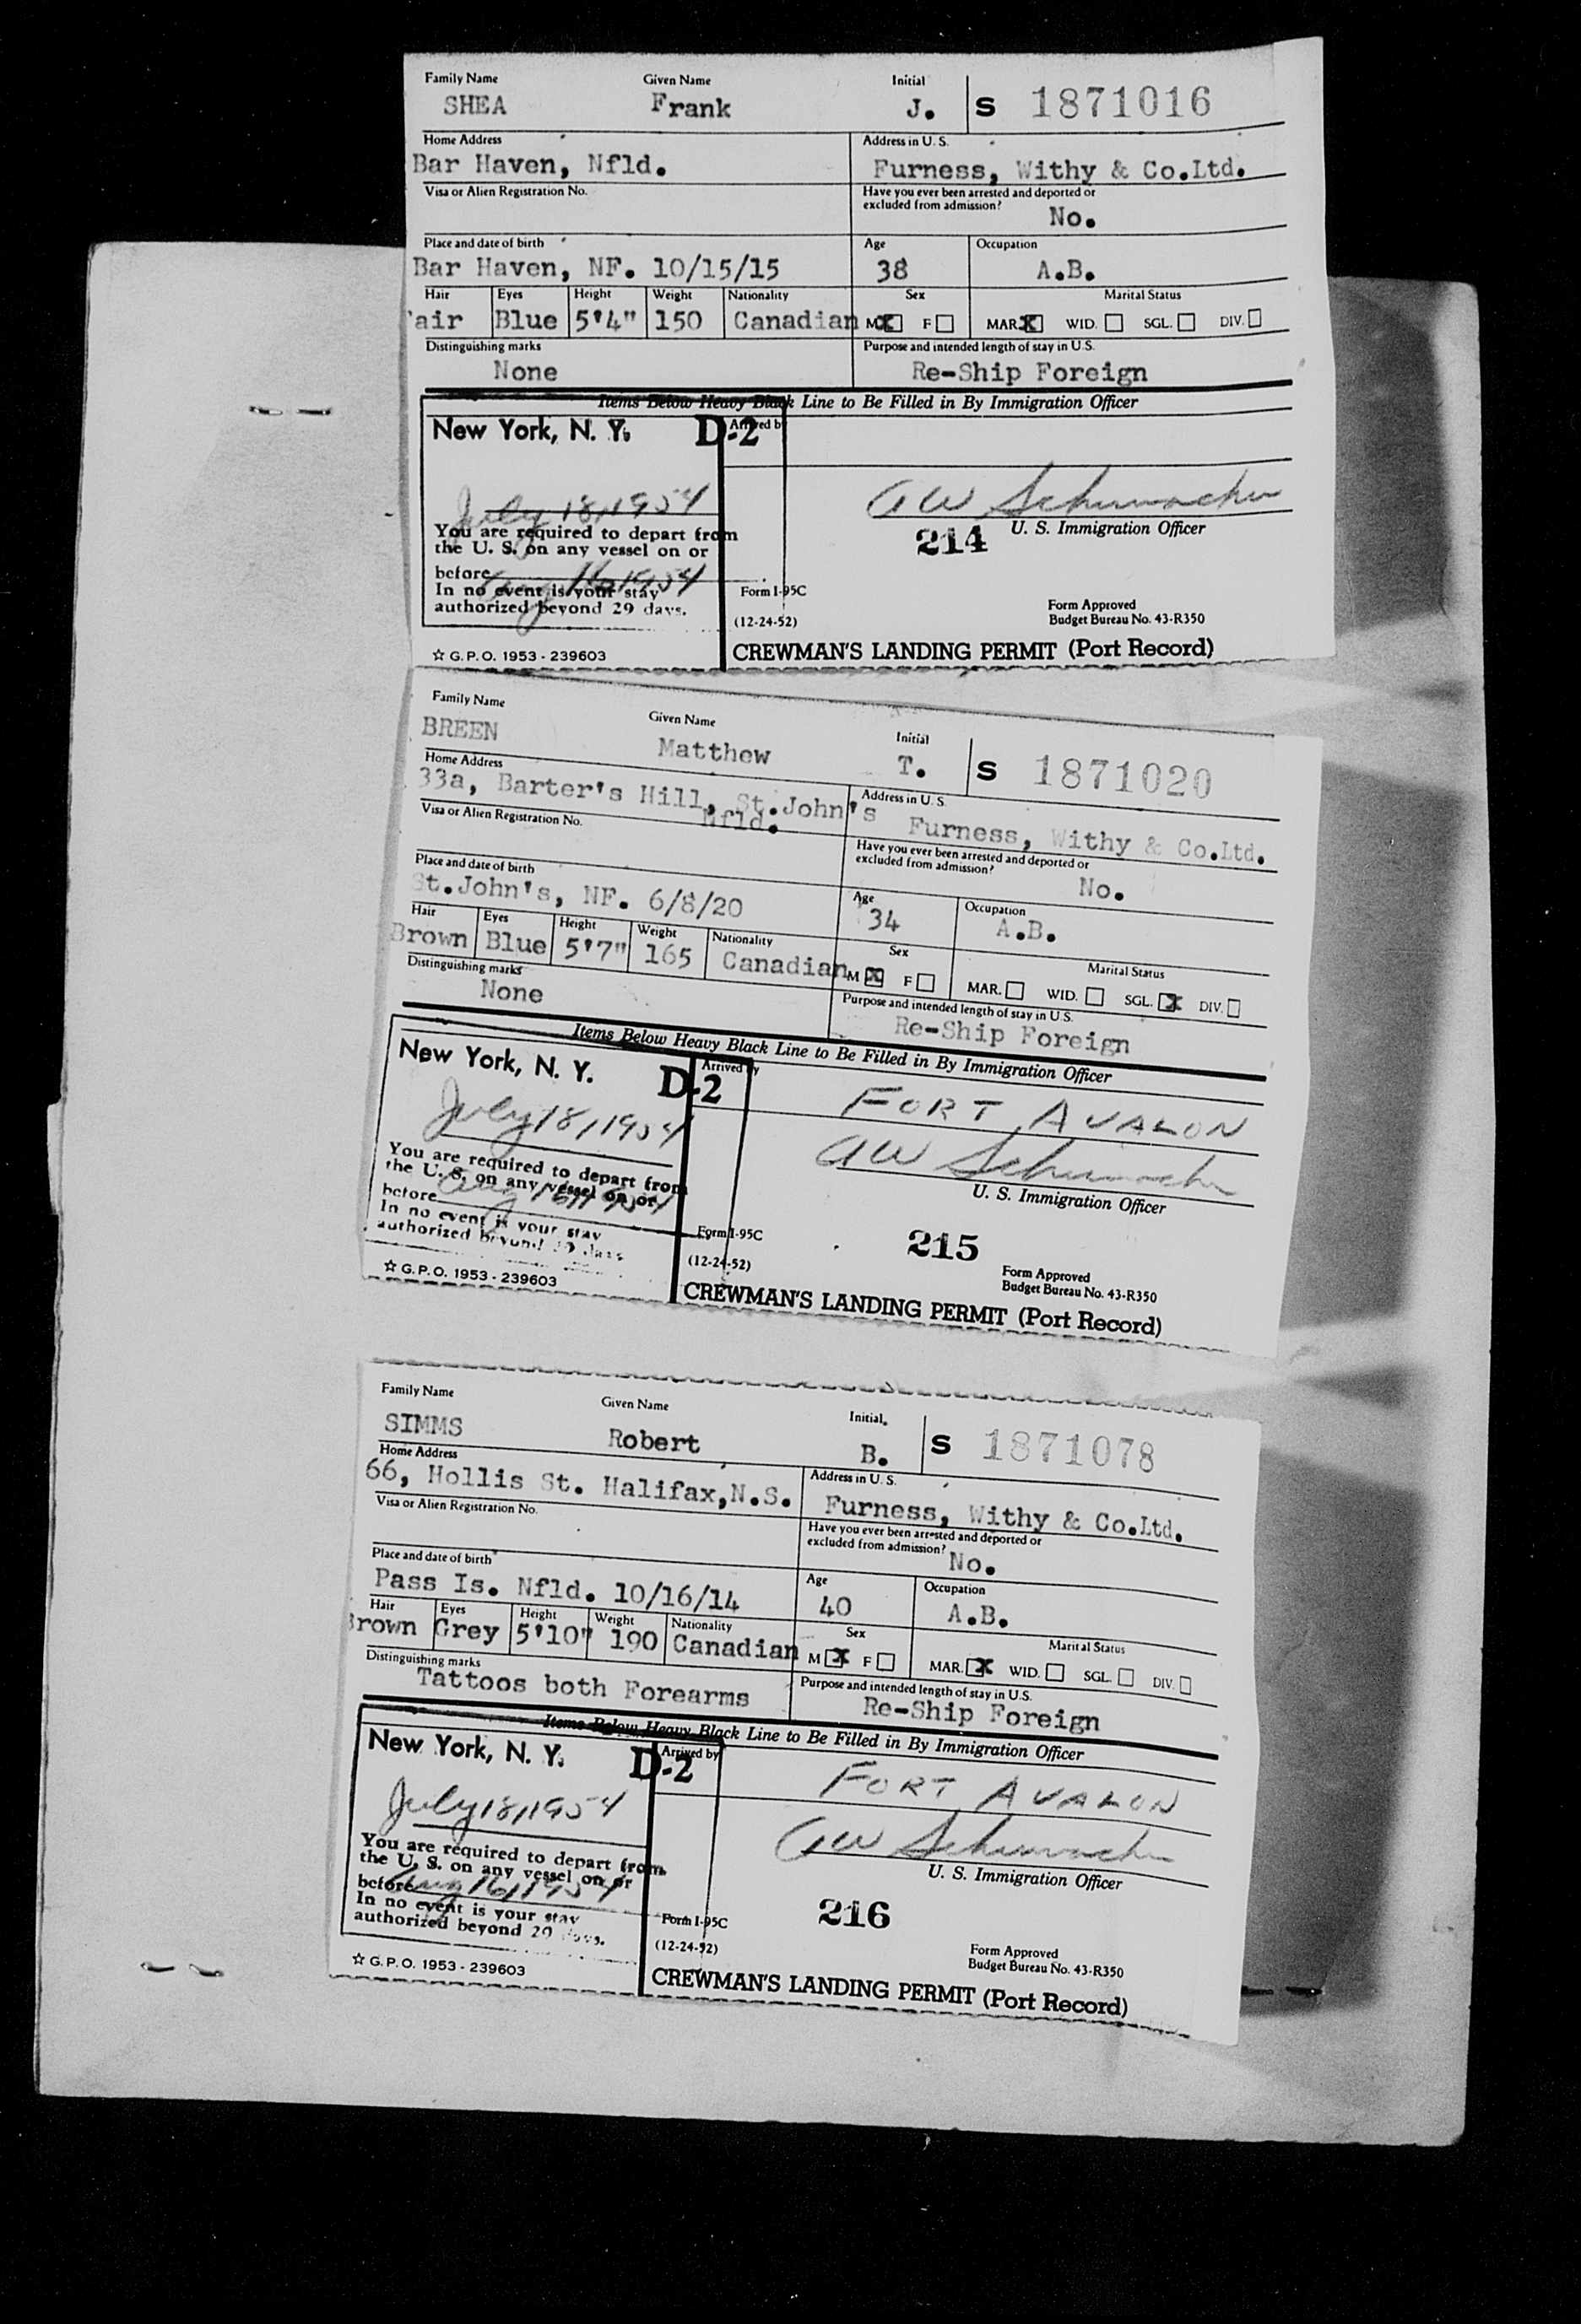 Family Name Given Name Initial
SHEA Frank J. S 1871016
Home Address Address in U. S.
Bar Haven, Nfld. Furness, Withy & Co.Ltd.
Visa or Alien Registration No. Have you ever been arrested and deported or
excluded from admission? No.
Place and date of birth Age Occupation
Bar Haven, NF. 10/15/15 38 A.B.
Hair Eyes Height Weight Nationality Sex Marital Status
air Blue 5'4" 150 Canadian M X F MAR. X WID. SGL. DIV.
Distinguishing marks Purpose and intended length of stay in U.S.
None Re-Ship Foreign
Items Below Heavy Black Line to Be Filled in By Immigration Officer
New York, N. Y. D-2 Arrived by
July 18, 1954 AW Schumacher
You are required to depart from U. S. Immigration Officer
the U. S. on any vessel on or 214
before Aug 16, 1954
In no event is your stay Form I-95C
authorized beyond 29 days. (12-24-52) Form Approved
Budget Bureau No. 43-R350
☆ G.P.O. 1953 - 239603 CREWMAN'S LANDING PERMIT (Port Record)
Family Name Given Name Initial
BREEN Matthew T. S 1871020
Home Address Address in U. S.
33a, Barter's Hill, St.John's Furness, Withy & Co.Ltd.
Nfld.
Visa or Alien Registration No. Have you ever been arrested and deported or
excluded from admission? No.
Place and date of birth Age Occupation
St.John's, NF. 6/8/20 34 A.B.
Hair Eyes Height Weight Nationality Sex Marital Status
Brown Blue 5'7" 165 Canadian M X F MAR. WID. SGL. X DIV.
Distinguishing marks Purpose and intended length of stay in U.S.
None Re-Ship Foreign
Items Below Heavy Black Line to Be Filled in By Immigration Officer
New York, N. Y. D-2 Arrived by FORT AVALON
July 18, 1954 AW Schumacher
You are required to depart from U. S. Immigration Officer
the U. S. on any vessel on or
before Aug 16, 1954
In no event is your stay Form I-95C 215
authorized beyond 29 days (12-24-52) Form Approved
Budget Bureau No. 43-R350
☆ G.P.O. 1953 - 239603 CREWMAN'S LANDING PERMIT (Port Record)
Family Name Given Name Initial
SIMMS Robert B. S 1871078
Home Address Address in U. S.
66, Hollis St. Halifax,N.S. Furness, Withy & Co.Ltd.
Visa or Alien Registration No. Have you ever been arrested and deported or
excluded from admission? No.
Place and date of birth Age Occupation
Pass Is. Nfld. 10/16/14 40 A.B.
Hair Eyes Height Weight Nationality Sex Marital Status
Brown Grey 5'10" 190 Canadian M X F MAR. X WID. SGL. DIV.
Distinguishing marks Purpose and intended length of stay in U.S.
Tattoos both Forearms Re-Ship Foreign
Items Below Heavy Black Line to Be Filled in By Immigration Officer
New York, N. Y. D-2 Arrived by FORT AVALON
July 18, 1954 AW Schumacher
You are required to depart from U. S. Immigration Officer
the U. S. on any vessel on or
before Aug 16, 1954
In no event is your stay Form I-95C 216
authorized beyond 29 days. (12-24-52) Form Approved
Budget Bureau No. 43-R350
☆ G.P.O. 1953 - 239603 CREWMAN'S LANDING PERMIT (Port Record)